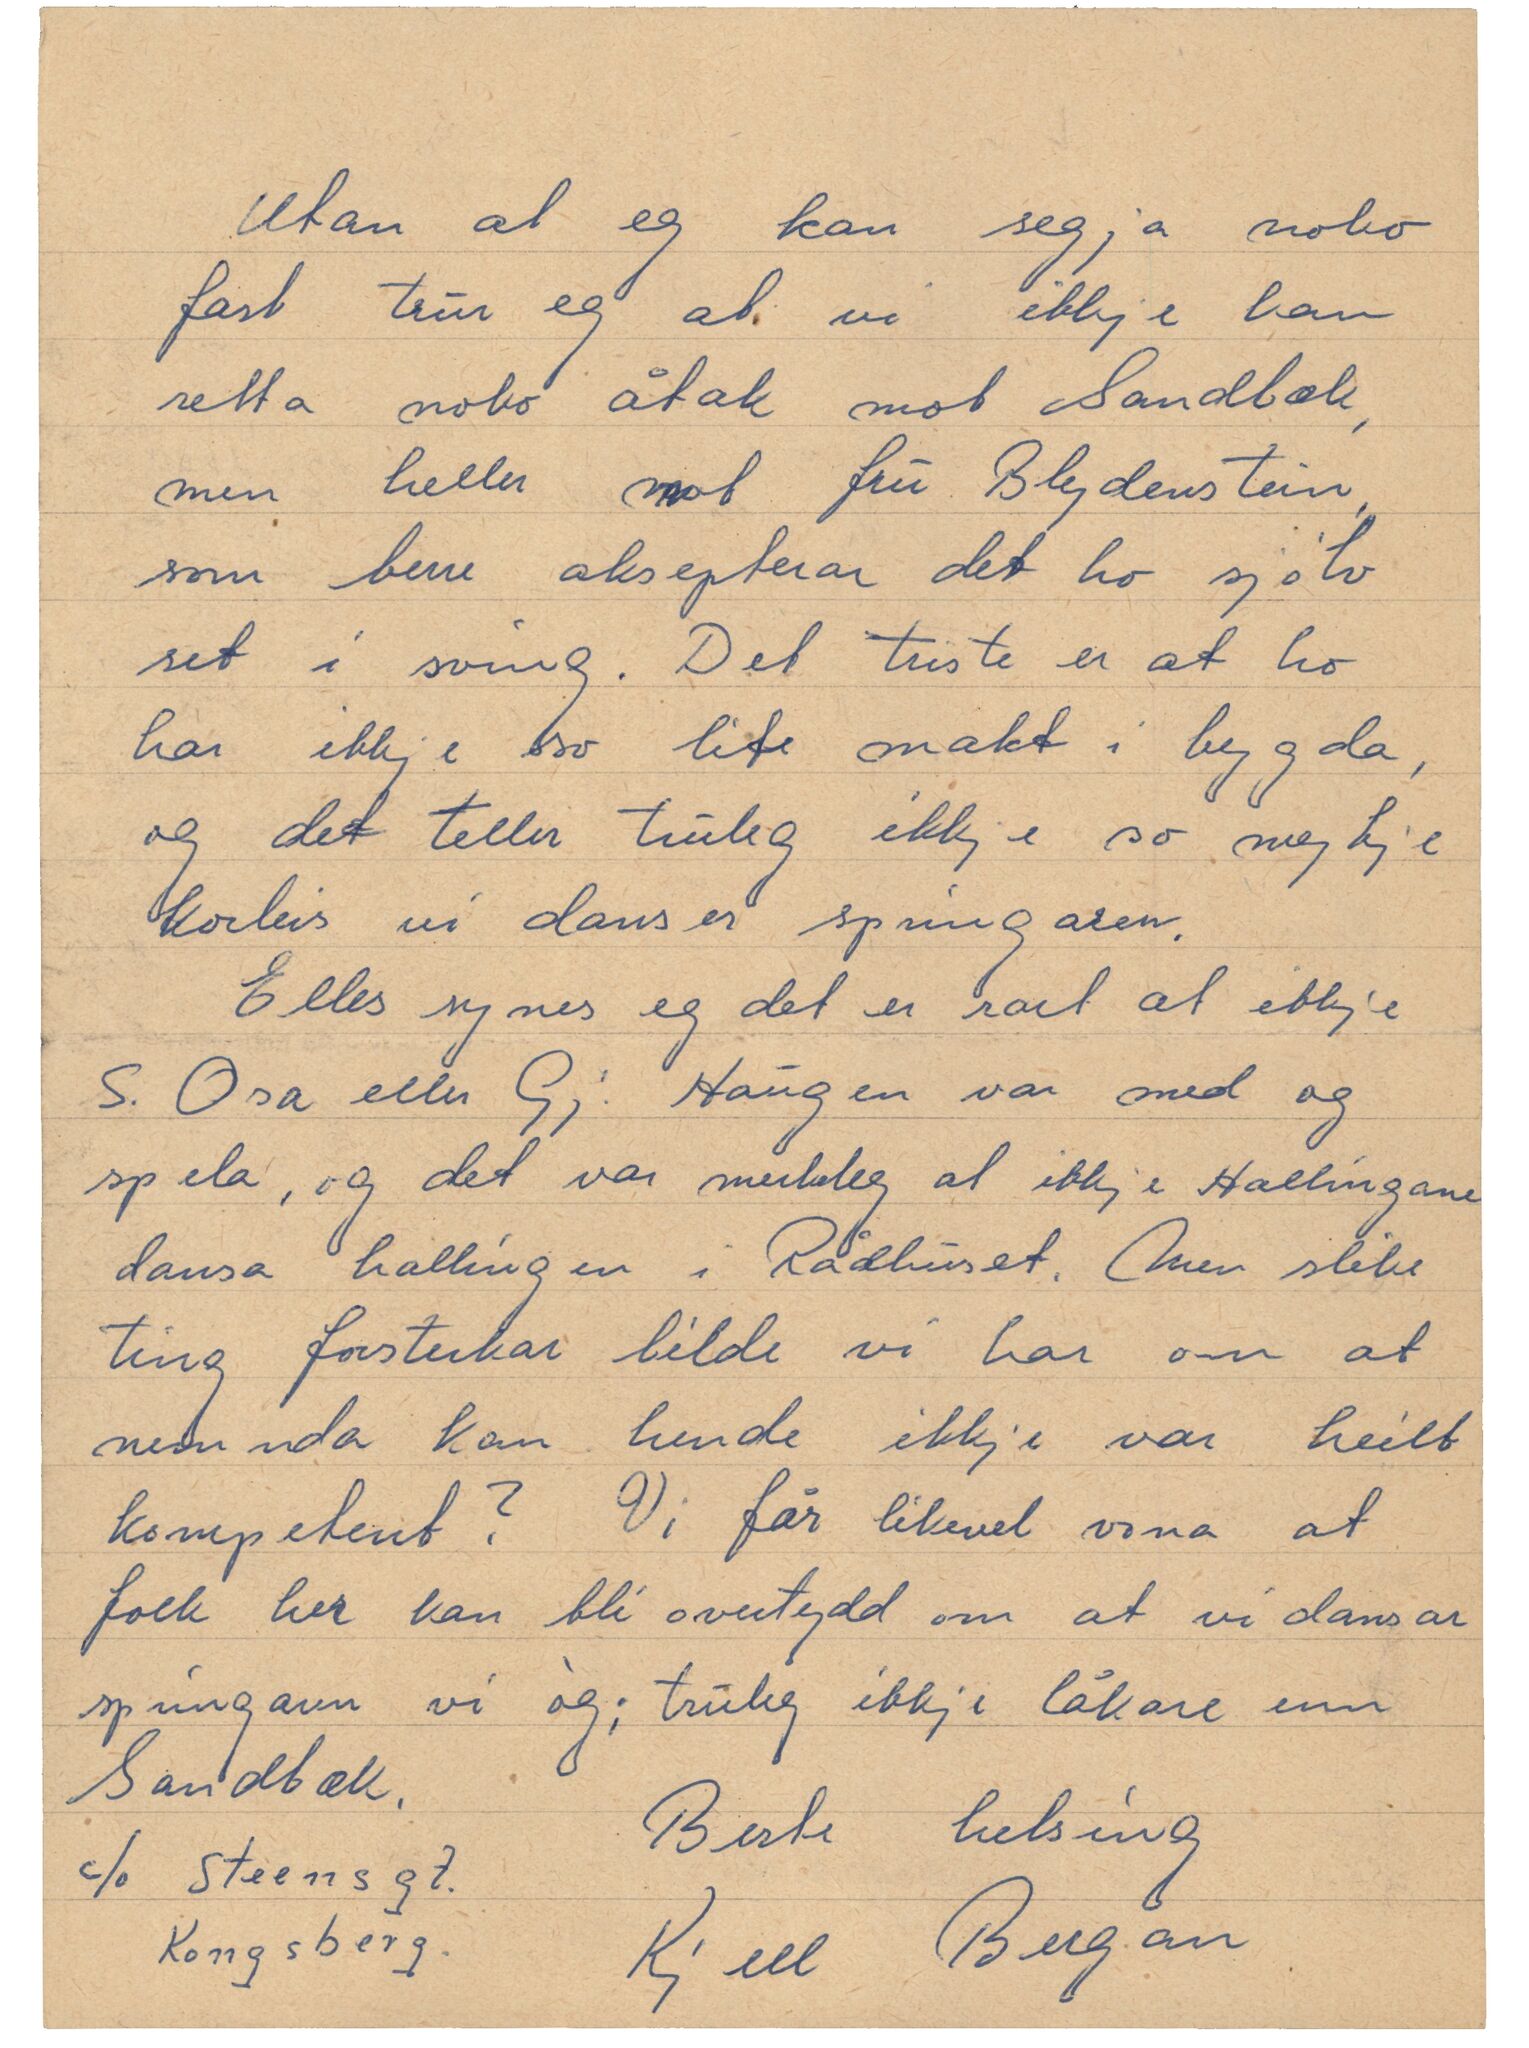 Utan at eg kan segja noko
fast trur eg at vi ikkje kan
retta noko åtak mot Sandbæk,
men heller mot fru Blydenstein,
som berre aksepterar det ho sjölv
set i sving. Det triste er at ho
har ikkje so lite makt i bygda,
og det teller truleg ikkje so mykje
korleis vi danser springaren.
Elles synes eg det er rart at ikkje
S. Osa eller Gj. Haugen var med og
spela, og det var merkeleg at ikkje Hallingane
dansa hallingen i Rådhuset. Men slike
ting forsterkar bilde vi har om at
nemnda kan hende ikkje var heilt
kompetent? Vi får likevel vona at
folk her kan bli overtydd om at vi dansar
springaren vi òg; truleg ikkje låkare enn
Sandbæk.
Beste helsing
c/o Steensgt.
Kongsberg.
Kjell Bergan